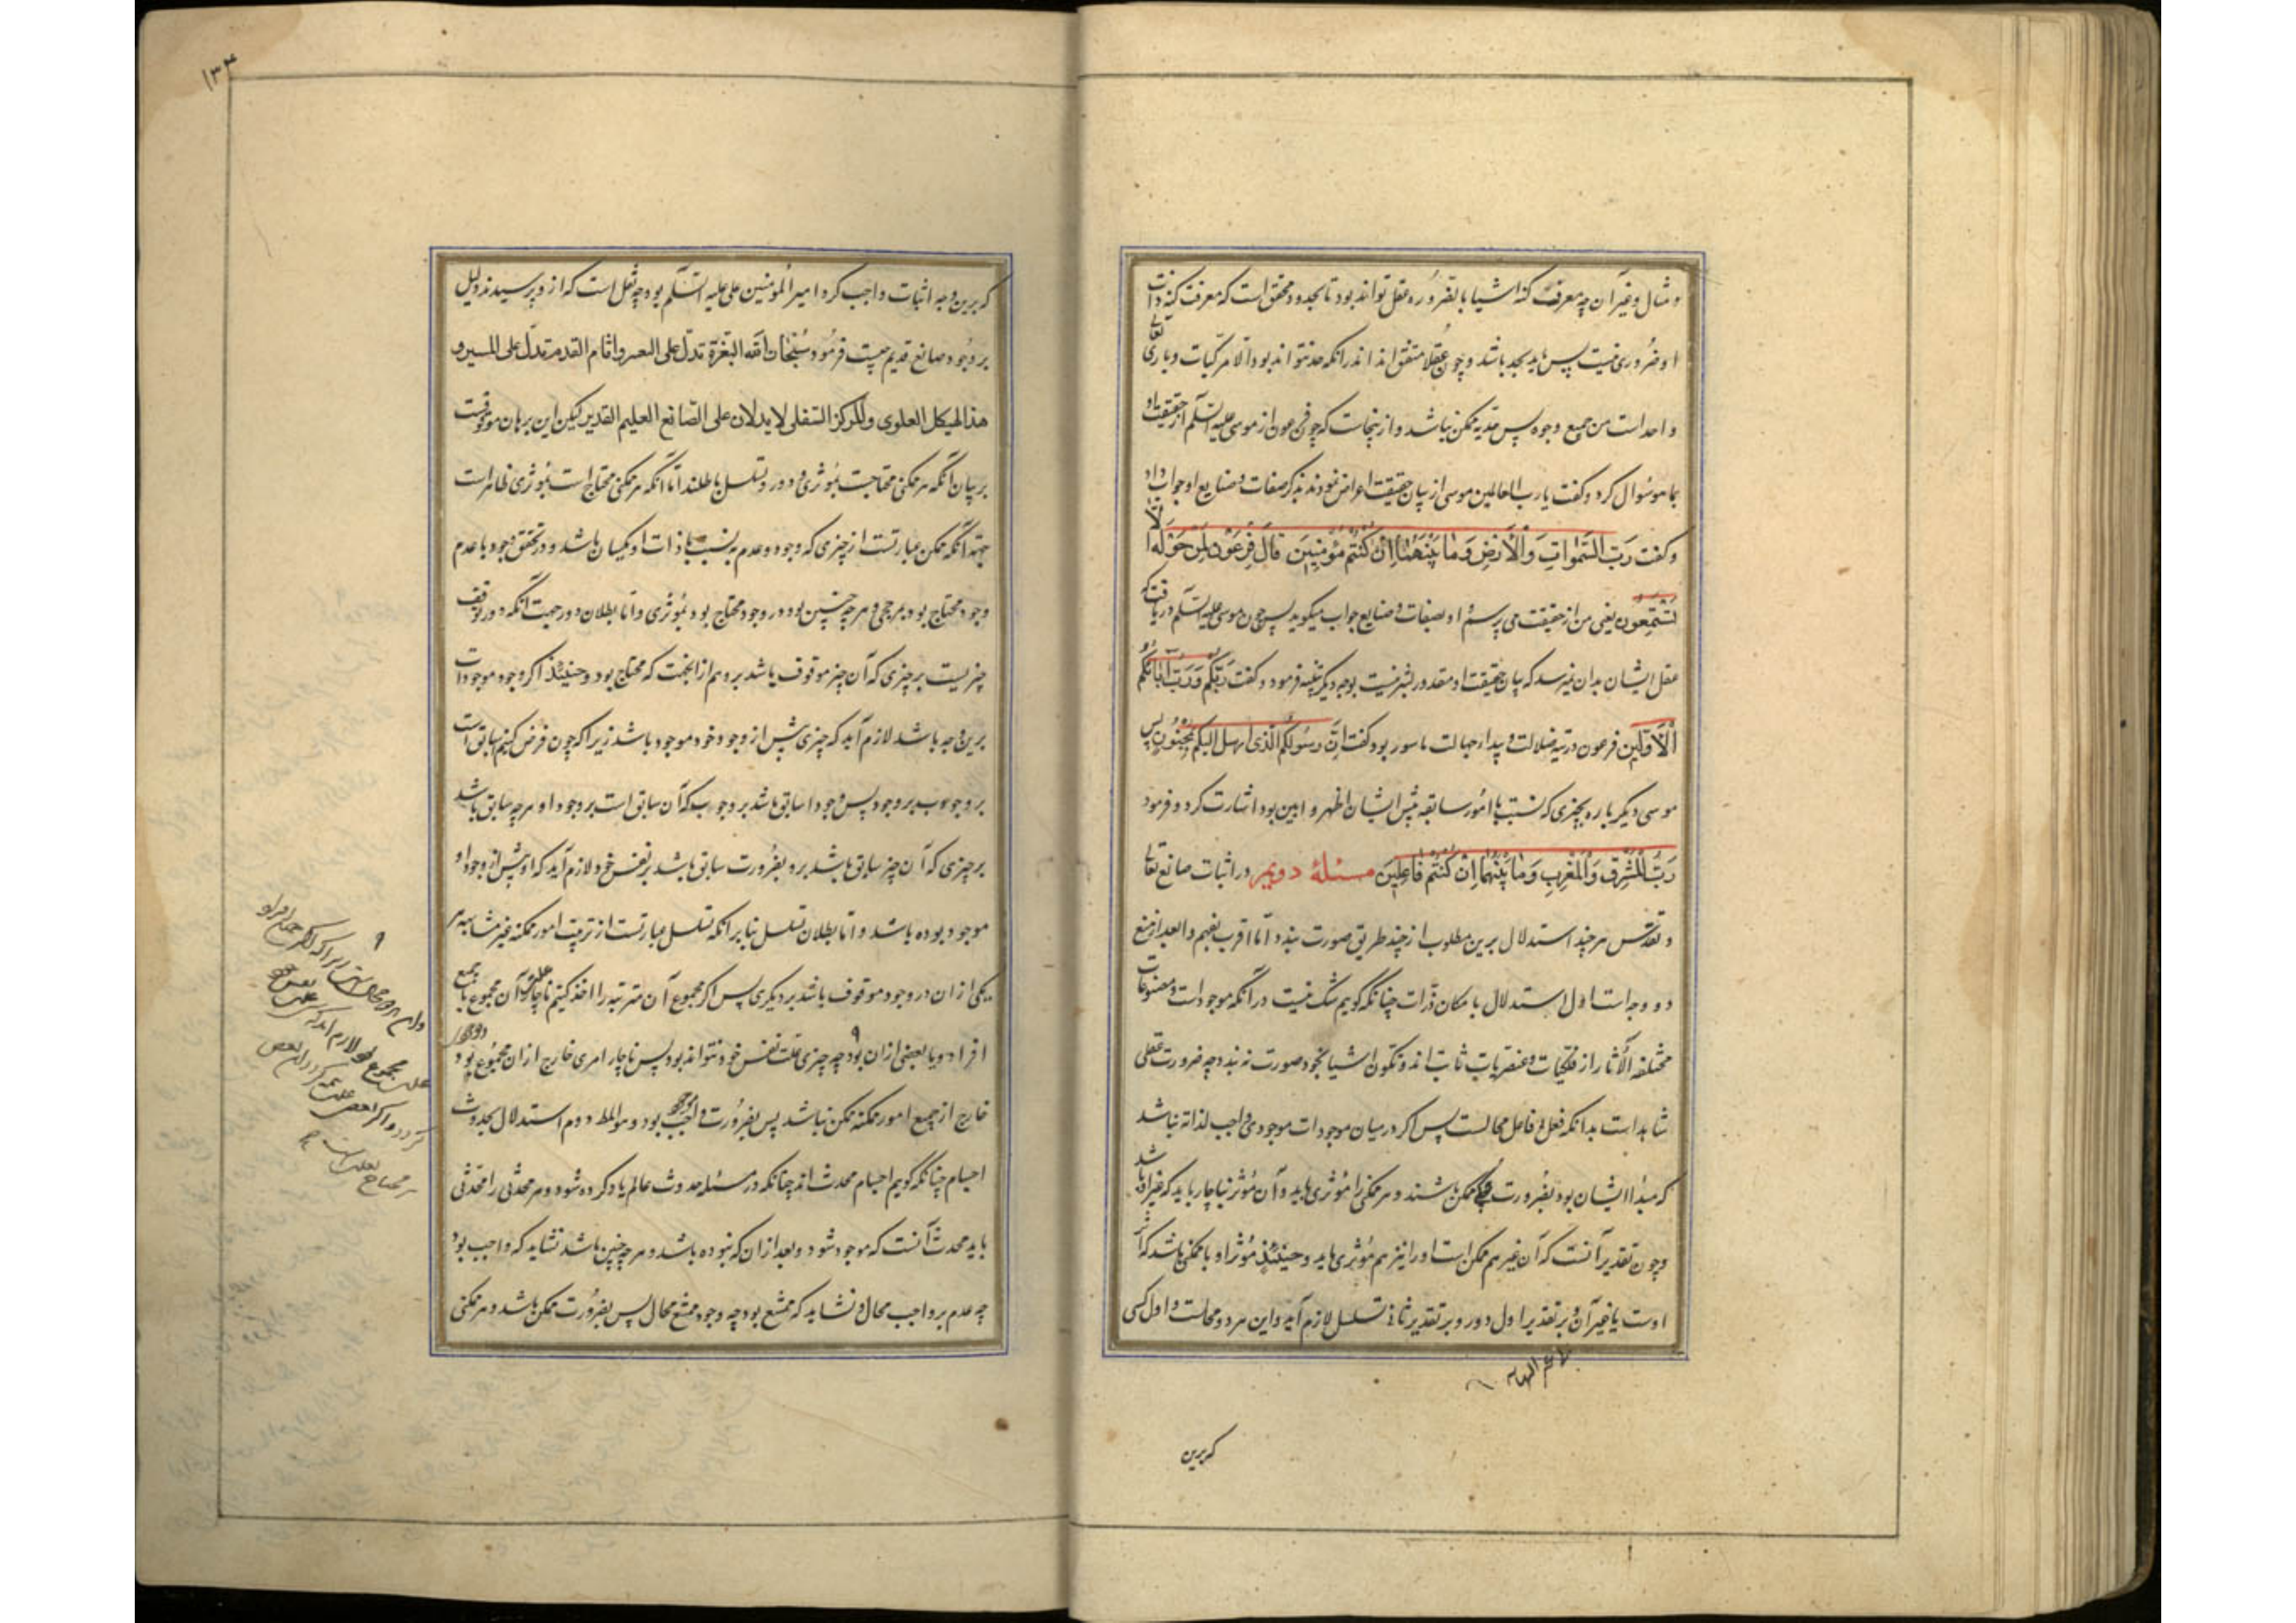 و مثال و غیر آن چه معرفت کنه اشیا یا بضروره عقل تواند بود تا بحد و محقق است که معرفت کنه ذات
او ضروری نیست پس باید بحد باشد و چون عقلا متفق اند اندر انکه حد نتواند بود الا مرکبات و باری تعالی
واحد است من جمیع وجوه پس تحدید ممکن نباشد و ازینجاست که چون فرعون از موسی علیه السلم از حقیقت او
بما سؤال کرد و گفت یا رب العالمین موسی از بیان حقیقت اعراض نمود بذکر صفات و صنایع او جواب داد
و گفت رَبّ السَّمٰواتِ وَالْأَرْضِ وَمٰا بَیْنَهُمٰا اِنْ کُنْتُمْ مُؤْمِنِینَ قٰالَ فِرْعَوْن لِمَنْ حَوْلَهُ اَلا
تَسْتَمِعُون یعنی من از حقیقت می پرسم او بصفات و صنایع جواب میگوید پس چون موسی علیه السلم دریافت که
عقل ایشان بدان نمیرسد که بیان حقیقت او مقدور بشر نیست بوجه دیگر تنبیه فرمود و گفت رَبُّکُم وَرَبُّ آبٰائِکُم
الْأَوَّلِین فرعون در تیه ضلالت و بیدا جهالت ماسور بود گفت اِنَّ رَسُولَکُم الَّذی ارسل الیکم لمجنون پس
موسی دیگر باره بچیزی که نسبت با امور سابقه پیش ایشان اظهر و ابین بود اشارت کرد و فرمود
رَبُّ الْمَشْرِق وَالْمَغْرِبِ وَمٰا بَیْنَهُمٰا اِنْ کُنْتُم فٰاعِلِینَ مسئلهٔ دویم در اثبات صانع تعالی
و تقدس هر چند استدلال برین مطلوب از چند طریق صورت بندد اما اقرب بفهم و ابعد از منع
دو وجه است اول استدلال بامکان ذرات چنانکه گوییم شک نیست در آنکه موجودات و مصنوعات
مختلفه الآثار از فلکیات و عنصریات ثابت اند و تکون اشیا بخود صورت نه بندد چه ضرورت عقلی
شاهد است بدانکه فعل بی فاعل محالست پس اگر در میان موجودات موجودی واجب لذاته نباشد
که مبدا ایشان بود بضرورت همه ممکن باشند و هر ممکنی را مؤثری باید و آن مؤثر ناچار باید که غیر او باشد
و چون تقدیر آنست که آن غیر هم ممکن است او را نیز هم مؤثری باید و حینئذ مؤثر او یا ممکن باشد که اثر
اوست یا غیر آن بر تقدیر اول دور و بر تقدیر ثانی تسلسل لازم آید و این هر دو محالست و اول کسی
که برین
۱۳۴
که برین وجه اثبات واجب کرد امیر المؤمنین علی علیه السلم بود چه نقل است که ازو پرسیدند دلیل
بر وجود صانع قدیم چیست فرمود سُبْحٰان الله البعرة تدل علی البعیر و اثار القدم تدل علی المسیر و
هذا الهیکل العلوی والمرکز السفلی لا یدلان علی الصانع العلیم القدیر لیکن این برهان موقوفست
بر بیان آنکه هر ممکنی محتاجست بمؤثری و دور و تسلسل باطلند اما آنکه هر ممکنی محتاج است بمؤثری ظاهر است
جهة آنکه ممکن عبارتست از چیزی که وجود و عدم به نسبت با ذات او یکسان باشد و در تحقق وجود با عدم
وجود محتاج بود بمرجحی و هر چه چنین بود در وجود محتاج بود بمؤثری و اما بطلان دور جهت آنکه دور توقف
چیزیست بر چیزی که آن چیز موقوف باشد برو هم از آن جهت که محتاج بود و حینئذ اگر وجود موجودات
برین وجه باشد لازم آید که چیزی پیش از وجود خود موجود باشد زیرا که چون فرض کنیم سابق است
بر وجود ب بر وجود پس وجود ا سابق باشد بر وجود ب که آن سابق است بر وجود ا و هر چه سابق باشد
بر چیزی که آن چیز سابق باشد برو بضرورت سابق باشد بر نفس خود و لازم آید که او پیش از وجود او
موجود بوده باشد و اما بطلان تسلسل بنابر آنکه تسلسل عبارتست از ترتیب امور ممکنه غیر متناهیه هر
یکی از ان در وجود موقوف باشد بر دیگری پس اگر مجموع آن مترتبه را اخذ کنیم ناچار علت آن مجموع یا جمیع
افراد بود یا بعضی ازان بود چه چیزی علت نفس خود نتواند بود پس ناچار امری خارج از ان مجموع بود
خارج از جمیع امور ممکنه ممکن نباشد پس بضرورت واجب بود و هو المط دوم استدلال بحدوث
اجسام چنانکه گوییم اجسام محدث اند چنانکه در مسئله حدوث عالم یاد کرده شود و هر محدثی را محدثی
باید محدث آنست که موجود شود و بعد از ان که نبوده باشد و هر چه چنین باشد نشاید که واجب بود
چه عدم بر واجب محال و نشاید که ممتنع بود چه وجود ممتنع محال پس بضرورت ممکن باشد و هر ممکنی